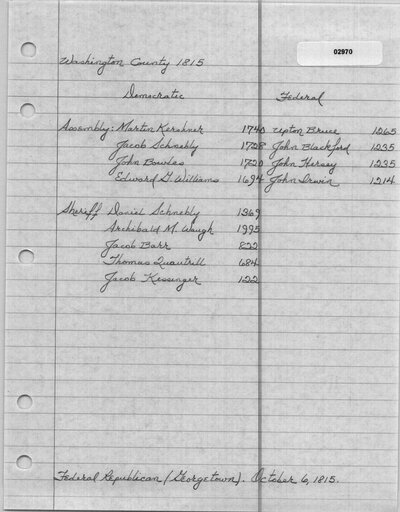 02970
Washington County 1815
Democratic Federal
Assembly: Martin Kershner 1740 Upton Bruce 1265
Jacob Schnebly 1728 John Blackford 1235
John Bowles 1720 John Hersey 1235
Edward G. Williams 1694 John Irwin 1214
Sheriff Daniel Schnebly 1369
Archibald M. Waugh 1995
Jacob Barr 822
Thomas Quantrill 684
Jacob Kessinger 122
Federal Republican (Georgetown). October 6, 1815.